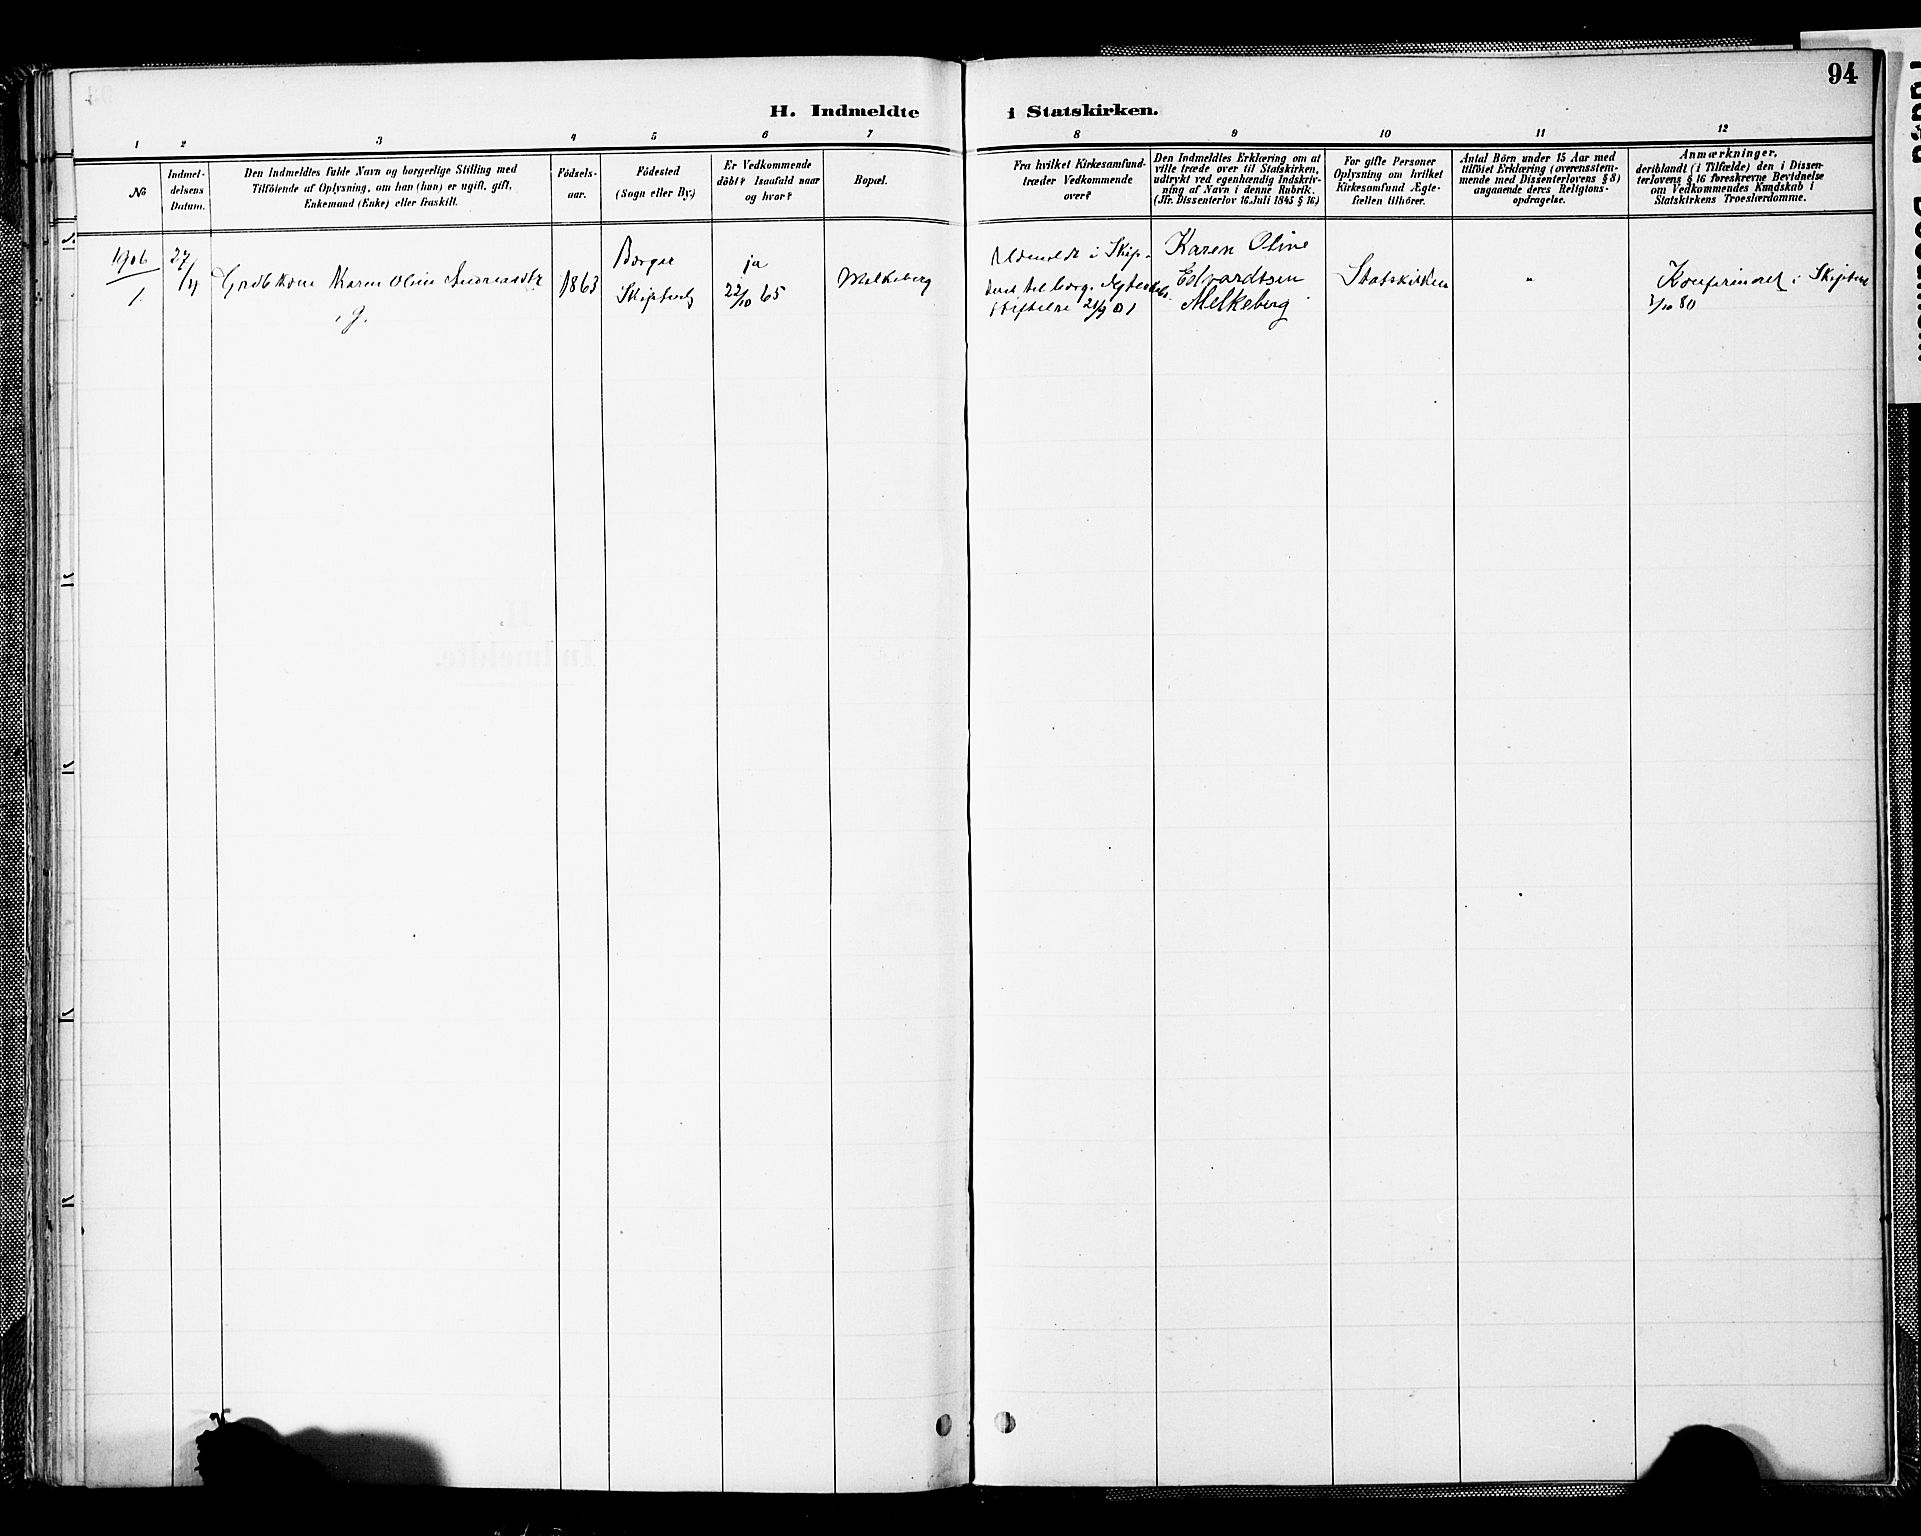 94
H. Indmeldte i Statskirken.
1 2 3 4 5 6 7 8 9 10 11 12
№
Indmel-
delsens
Datum.
Den Indmeldtes fulde Navn og borgerlige Stilling med
Tilföiende af Oplysning, om han (hun) er ugift, gift,
Enkemand (Enke) eller fraskilt.
Födsels-
aar.
Födested
(Sogn eller By.)
Er Vedkommende
döbt? Isaafald naar
og hvor?
Bopæl.
Fra hvilket Kirkesamfund-
træder Vedkommende
over?
Den Indmeldtes Erklæring om at
ville træde over til Statskirken,
udtrykt ved egenhændig Indskriv-
ning af Navn i denne Rubrik.
(Jfr. Dissenterlov 16. Juli 1845 § 16)
For gifte Personer
Oplysning om hvilket
Kirkesamfund Ægte-
fællen tilhörer.
Antal Börn under 15 Aar med
tilföiet Erklæring (overensstem-
mende med Dissenterlovens § 8)
angaaende deres Religions-
opdragelse.
Anmærkninger,
deriblandt (i Tilfælde) den i Dissen-
terlovens § 16 foreskrevne Bevidnelse
om Vedkommendes Kundskab i
Statskirkens Troeslærdomme.
1906
1.
27/4
Karen Oline
g.
1863
Borgar
Skjptvet
ja
22/10 65
Melkeberg
Udmeldt i Skip-
tvet
21/9 81
Karen Oline
Edvardtsen
Melkeberg
Statskirken
"
Konfirmeret i Skiptvet
/10 80